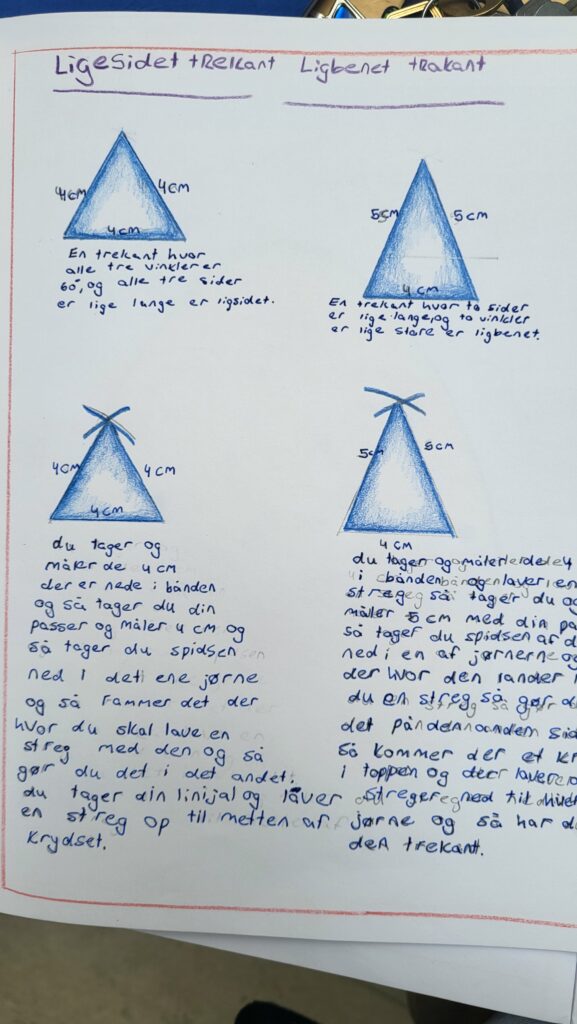 LigeSidet tREKANT
Ligbenet trakant
4cm
4cm
4cm
En trekant hvor
alle tre vinkler er
60°, og alle tre sider
er lige lange er ligsidet.
5cm
5cm
4cm
En trekant hvor to sider
er lige lange, og to vinkler
er lige store er ligbenet.
4cm
4cm
4cm
du tager og
måler de 4 cm
der er nede i bånden
og så tager du din
passer og måler 4 cm og
så tager du spidsen
ned i det ene jørne
og så rammer det der
hvor du skal lave en
streg med den og så
gør du det i det andet.
du tager din linijal og laver
en streg op til metten af
krydset.
5cm
5cm
4cm
du tager og måler de 4
i bånden og laver en
streg så tager du og
måler 5 cm med din pa
så tager du spidsen af d
ned i en af jørnerne og
der hvor den lander
du en streg så gør d
det på den anden sid
så kommer der et kr
i toppen og der laver
streger ned til
jørne og så har d
den trekant.